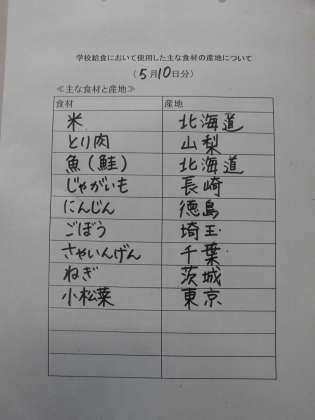 学校給食において使用した主な食材の産地について
(5月10日分)
≪主な食材と産地≫
食材 産地
米 北海道
とり肉 山梨
魚(鮭) 北海道
じゃがいも 長崎
にんじん 徳島
ごぼう 埼玉
さやいんげん 千葉
ねぎ 茨城
小松菜 東京